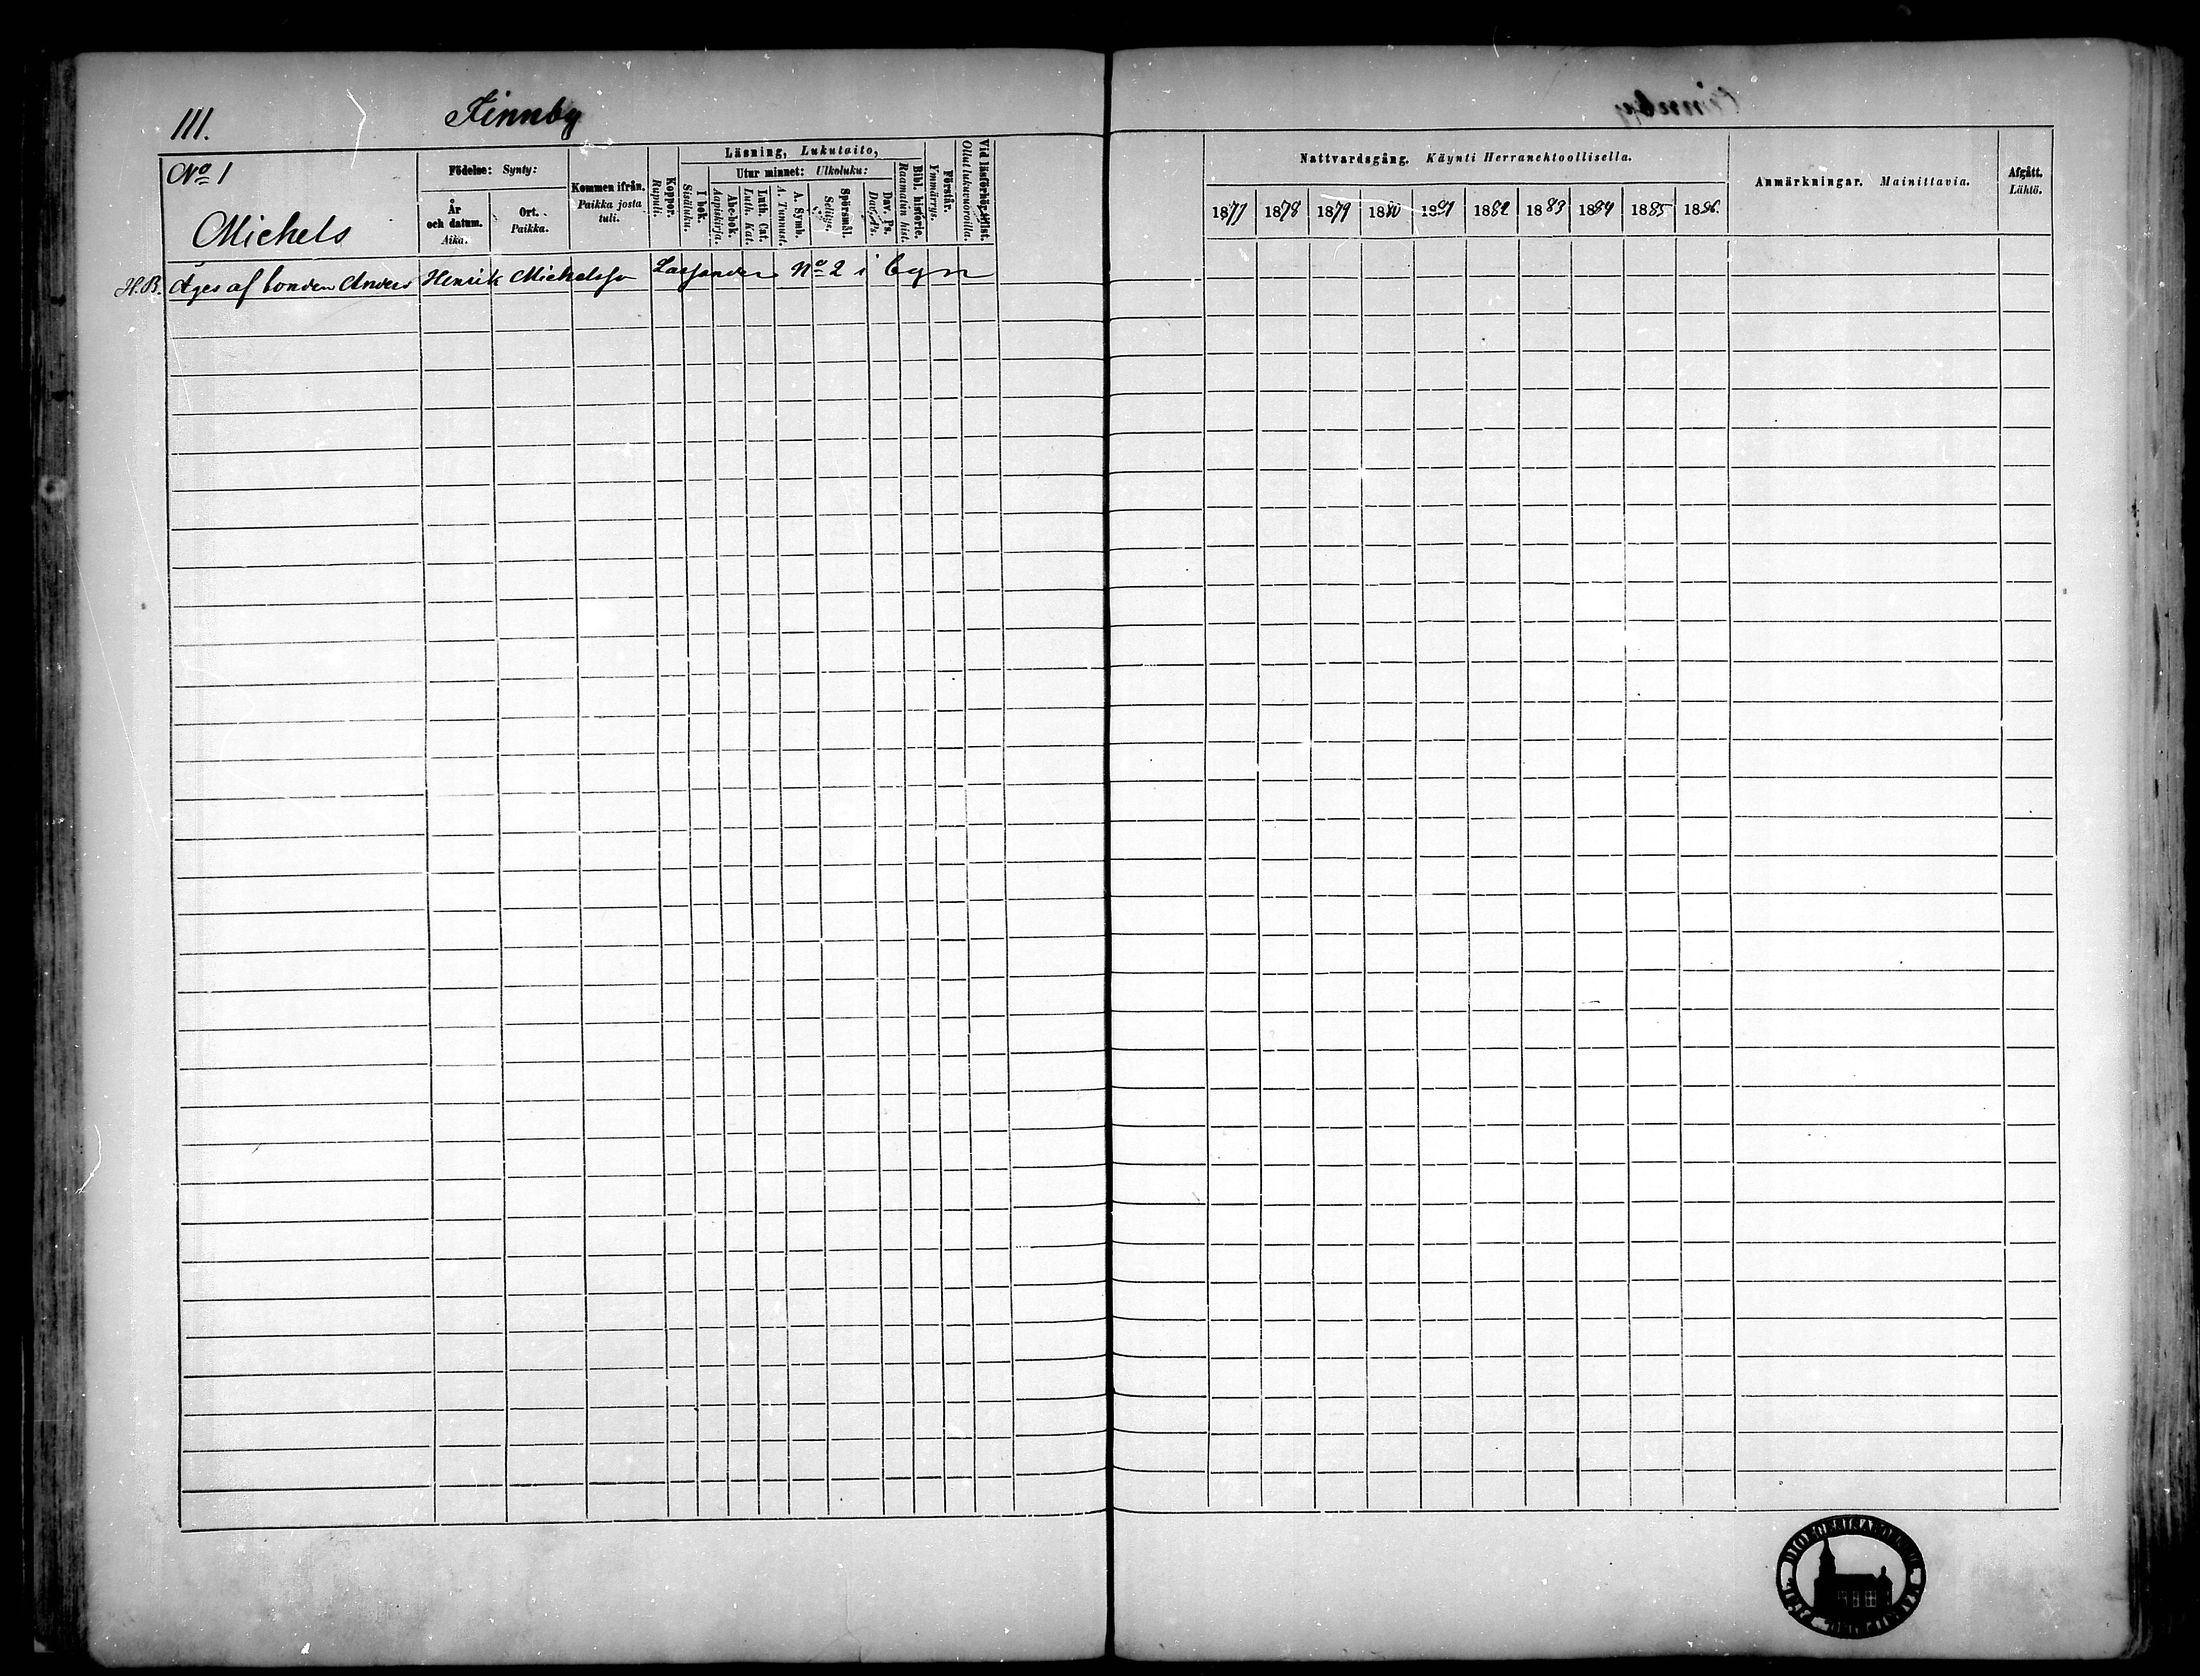 111.
Finnby
No 1
Michels
Födelse: Synty:
År och datum. Aika.
Ort. Paikka.
Kommen ifrån. Paikka josta tuli.
Koppor. Rupuli.
Läsning, Lukutaito,
I bok. Sisäluku.
Utur minnet: Ulkoluku:
Abc-bok. Aapiskirja.
Luth. Cat. Luth. Kat.
A. Symb. A. Tunnust.
Spörsmål. Selitys.
Dav. Ps. Dav. Ps.
Bibl. historie. Raamatun hist.
Förstår. Ymmärrys.
Vid läsförhör tillst. Ollut lukuvuoroilla.
Nattvardsgång. Käynti Herranehtoollisella.
1877 1878 1879 1880 1881 1882 1883 1884 1885 1886.
Anmärkningar. Mainittavia.
Afgått. Lähtö.
H.B. Äges af bonden Anders Henrik Michelsso Lassander No 2 i byn